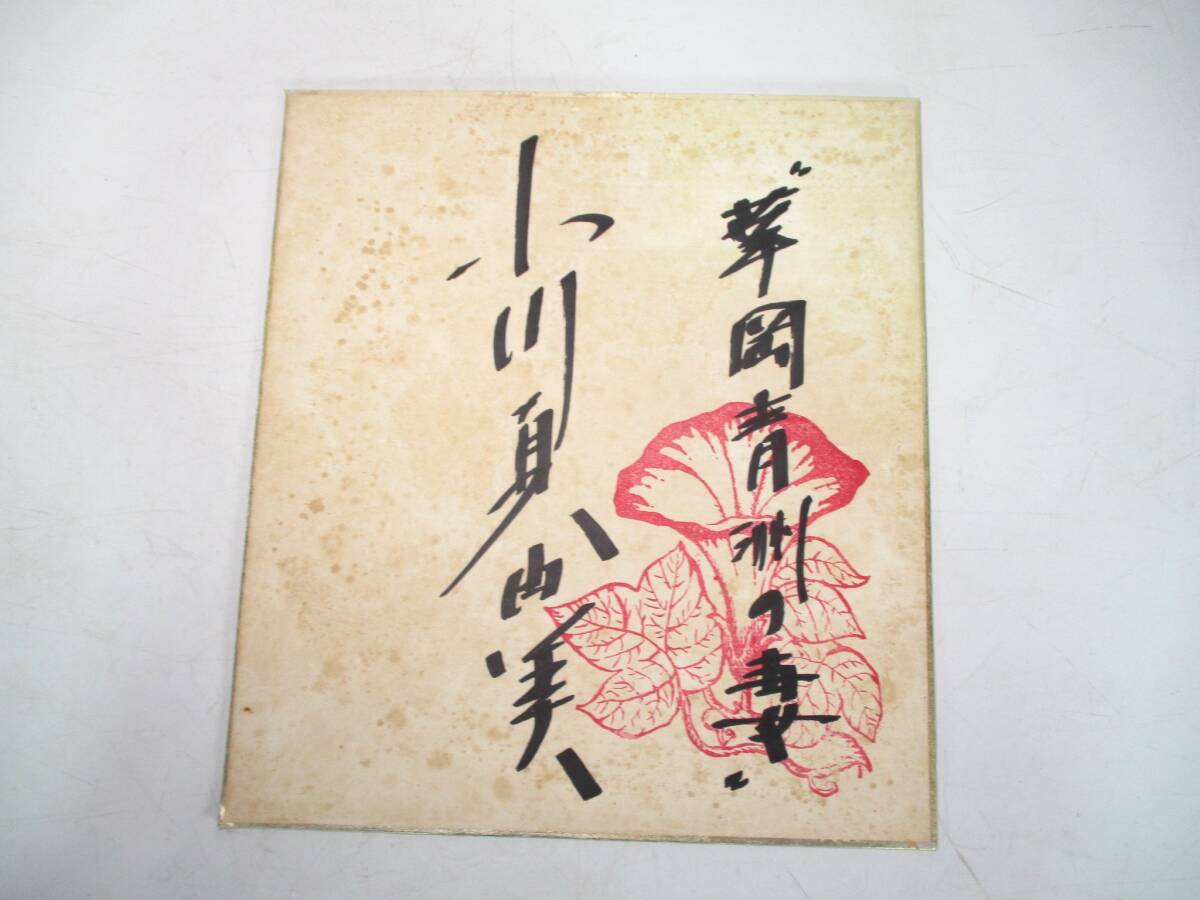 "華岡青洲の妻"
小川真由美